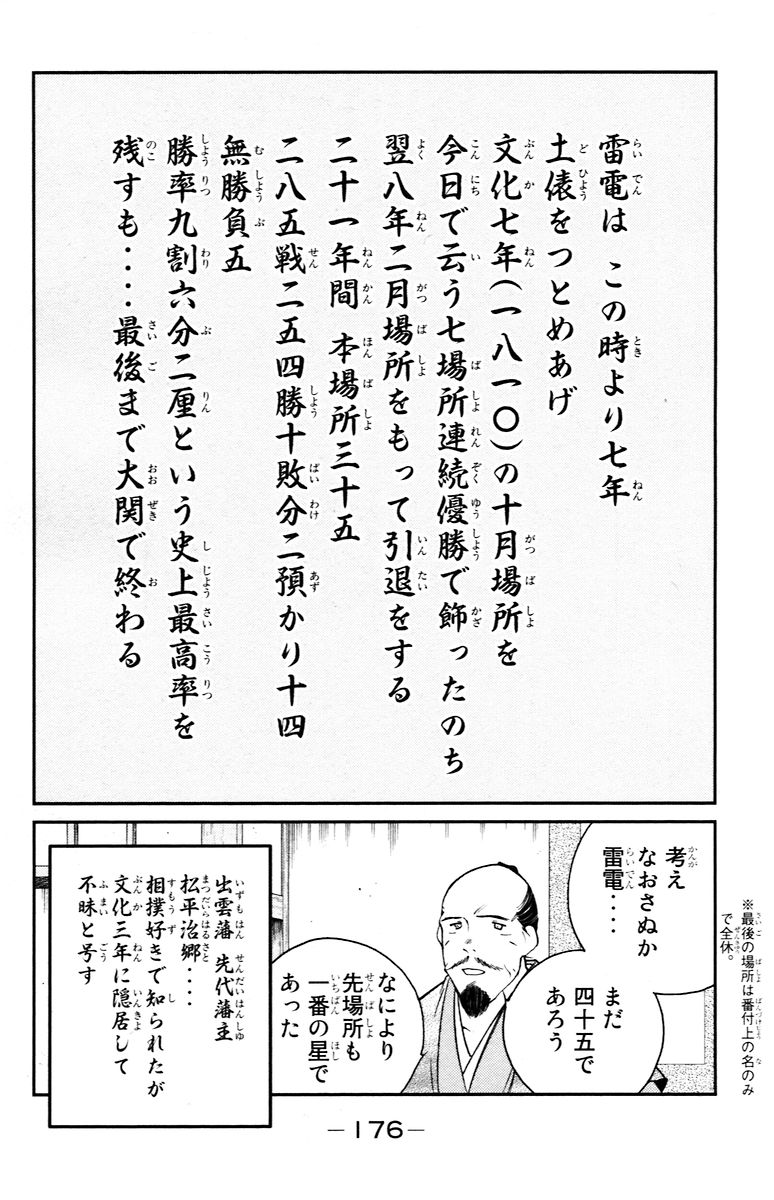 雷電は この時より七年
土俵をつとめあげ
文化七年(一八一〇)の十月場所を
今日で云う七場所連続優勝で飾ったのち
翌八年二月場所をもって引退をする
二十一年間 本場所三十五
二八五戦二五四勝十敗分二預かり十四
無勝負五
勝率九割六分二厘という史上最高率を
残すも‥‥最後まで大関で終わる
※最後の場所は番付上の名のみ
で全休。
考え
なおさぬか
雷電‥‥
まだ
四十五で
あろう
なにより
先場所も
一番の星で
あった
出雲藩 先代藩主
松平治郷‥‥
相撲好きで知られたが
文化三年に隠居して
不昧と号す
—176—